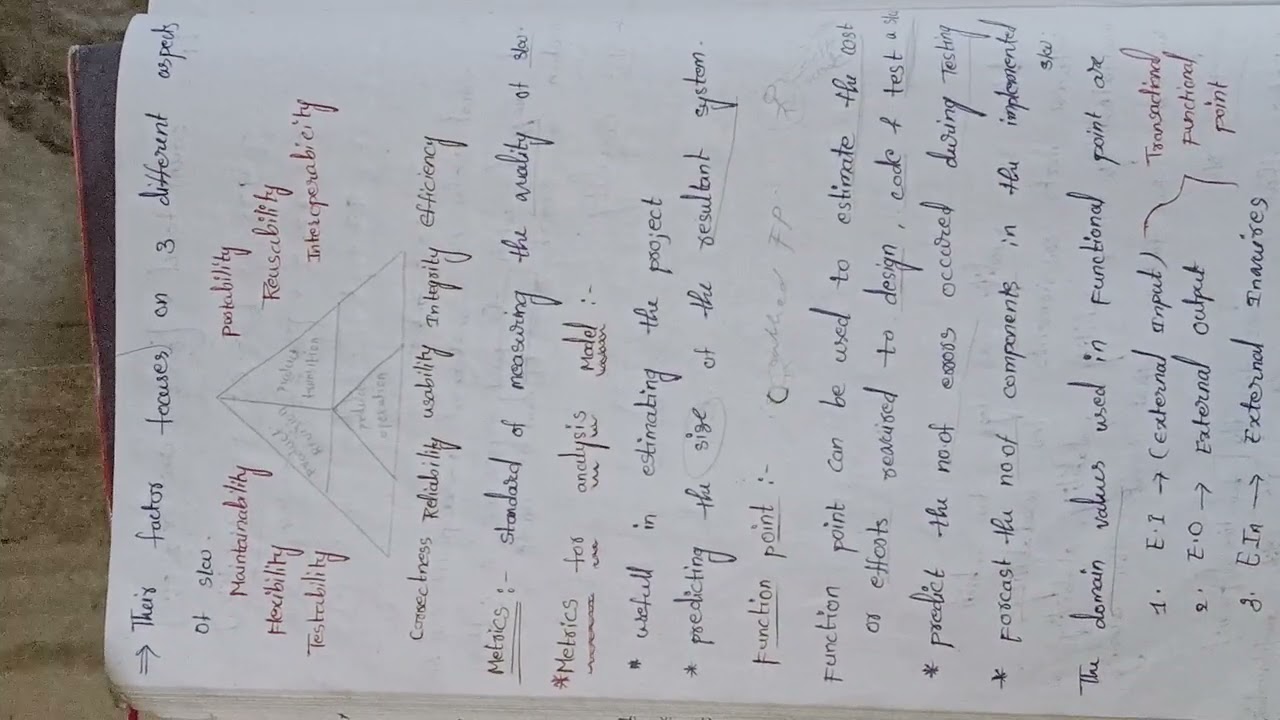 ⇒ Their factor focuses on 3 different aspects
of s/w.
Maintainability
Flexibility
Testability
Postability
Reusability
Interoperability
product
product
operation
Correctness Reliability usability Integrity efficiency
Metrics :- standard of measuring the quality of s/w.
*Metrics for analysis Model :-
* usefull in estimating the project
* predicting the size of the resultant system.
Function point :-
FP
Function point can be used to estimate the cost
or efforts required to design, code & test a s/w
* predict the no.of errors occured during Testing
* Forcast the no.of components in the implemented
s/w.
The domain values used in Functional point are
1. E.I → (External Input)
2. E.O → External output
3. EIn → External Inquires
Transactional
Functional
point